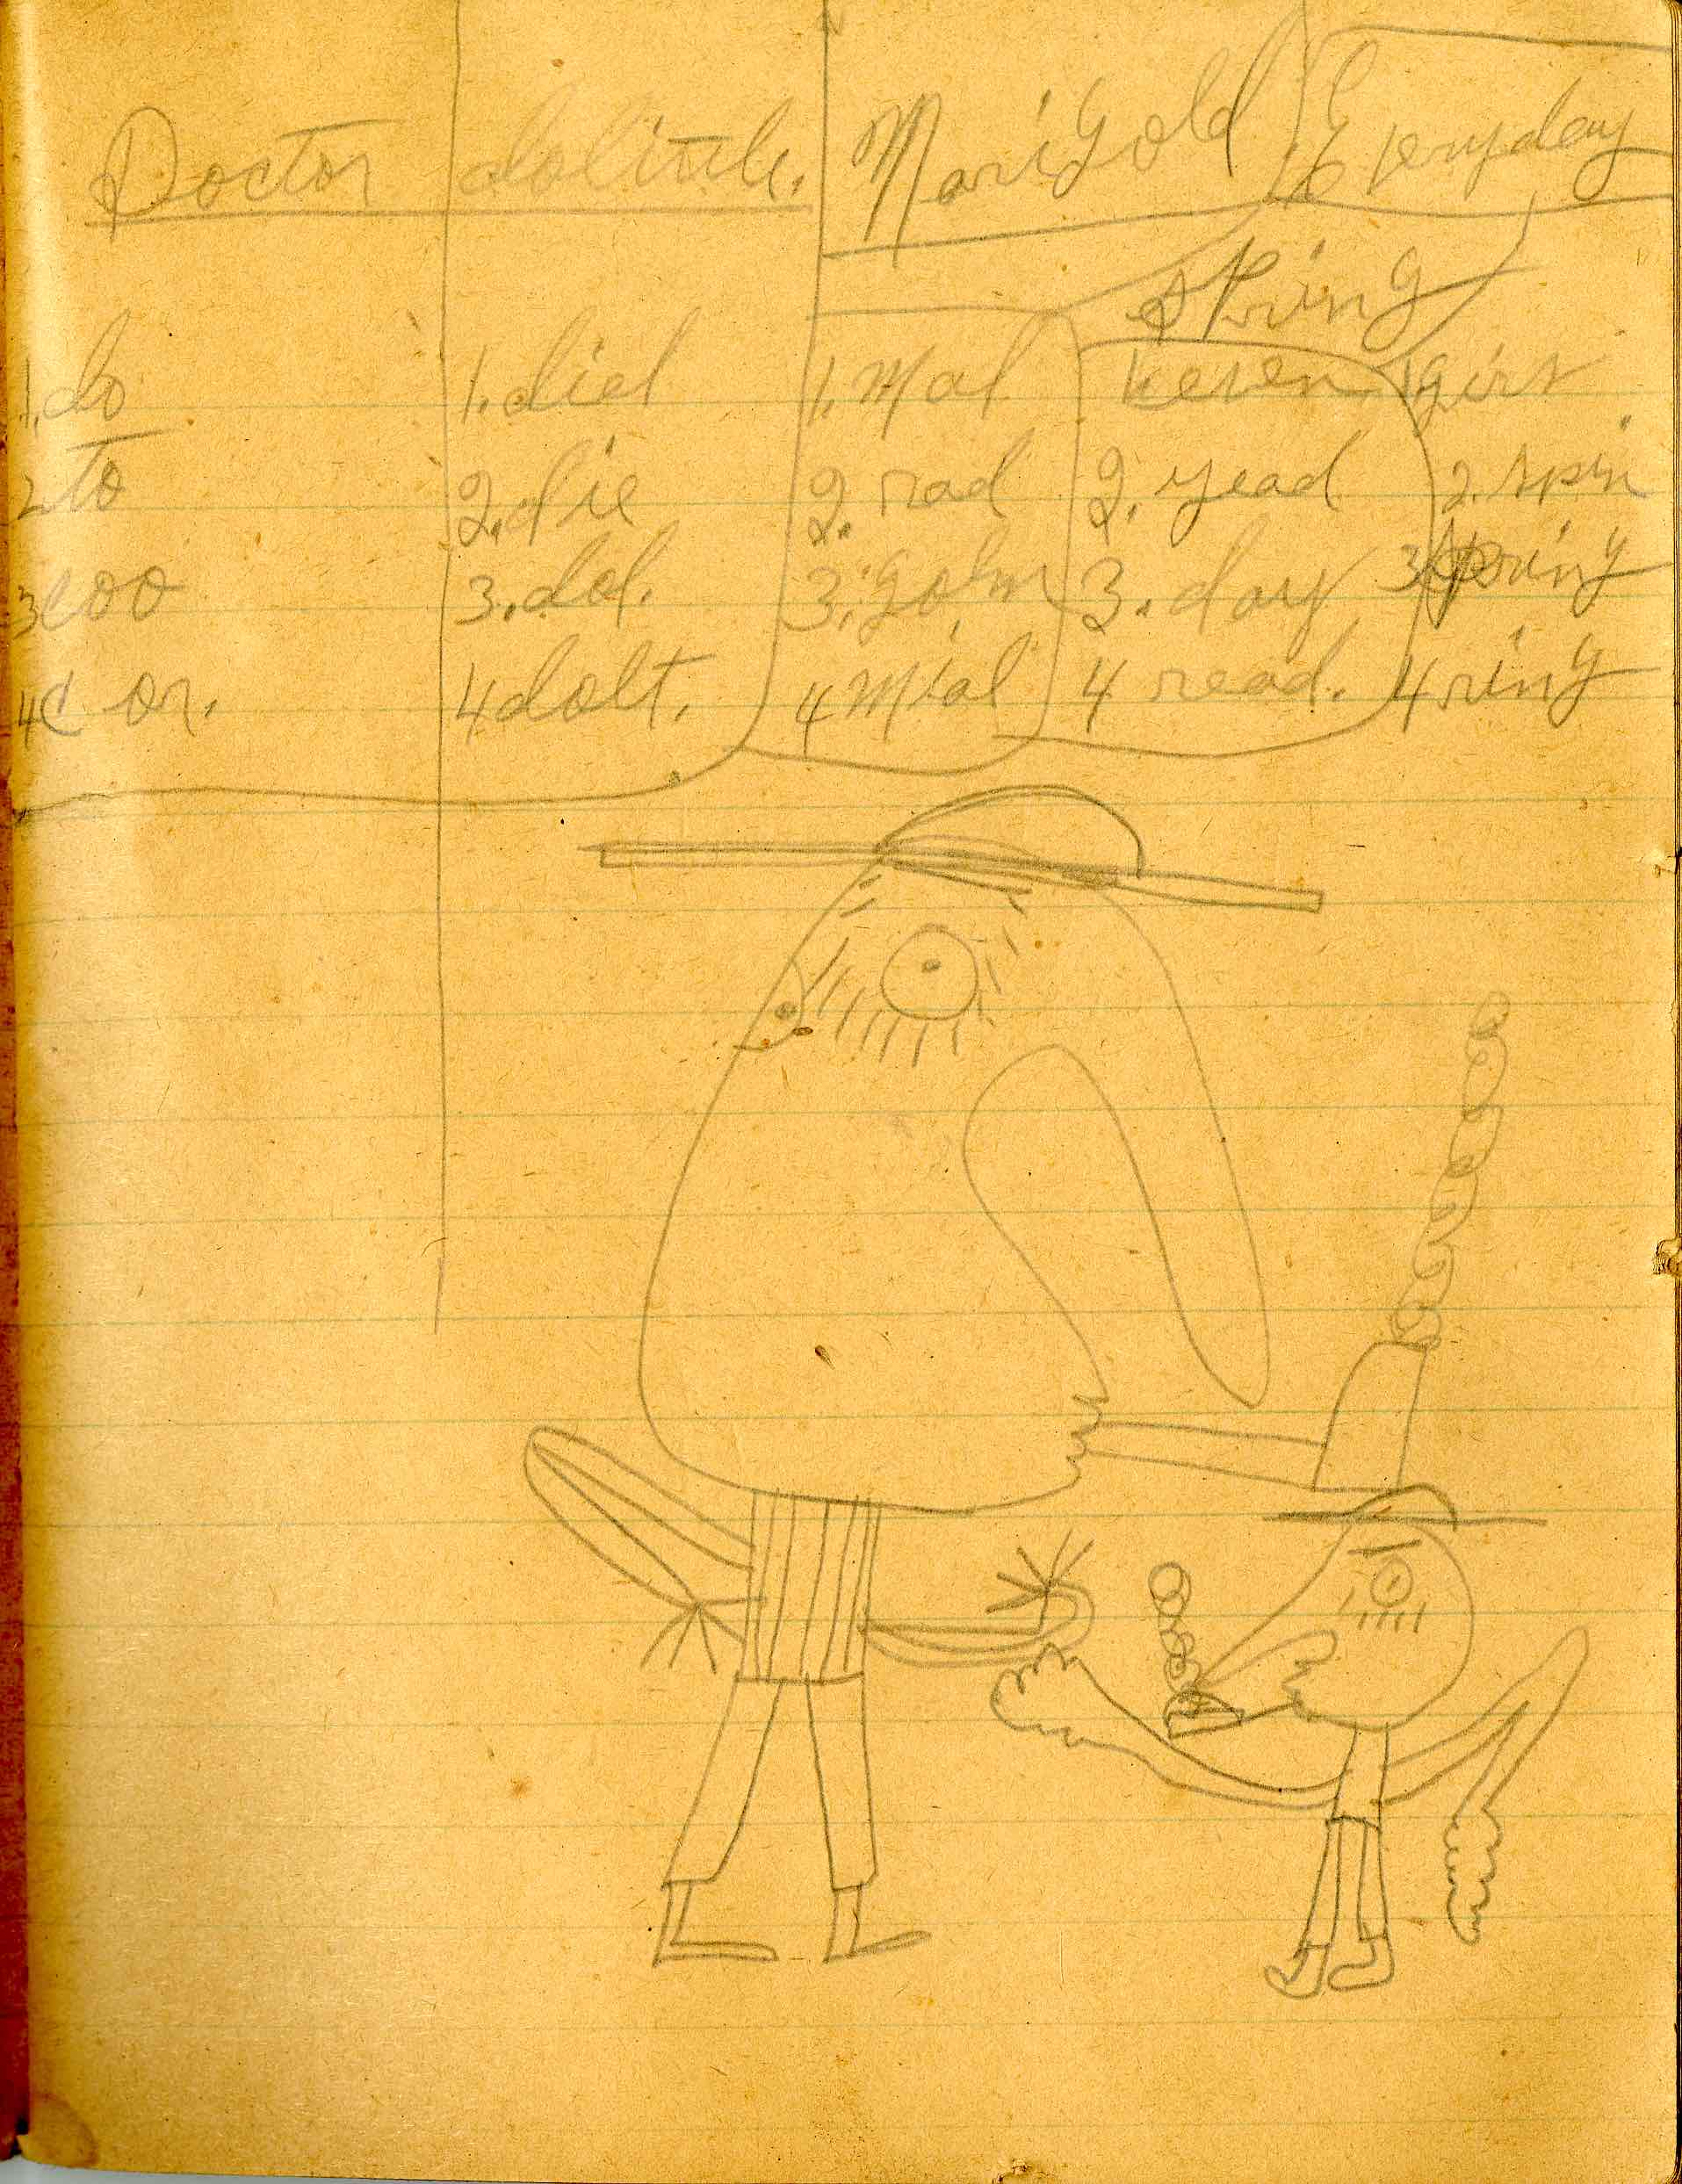 Doctor dolittle. Marigold Everyday
spring
1. do 1. diel 1. Mal 1. even 1 girs
2 to 2. die 2. rad 2. yead 2. spin
3 coo 3. dol. 3. golm 3. day 3 spring
4 or. 4 dolt. 4 Mial 4 read. 4 ring